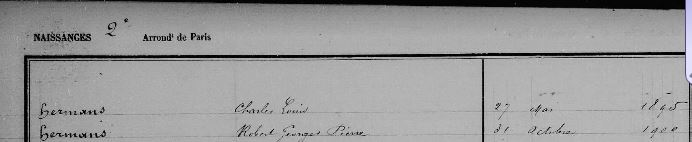 NAISSANCES 2e Arrondt de Paris
Hermans Charles Louis 27 Mai 1895
Hermans Robert Georges Pierre 31 Octobre 1900